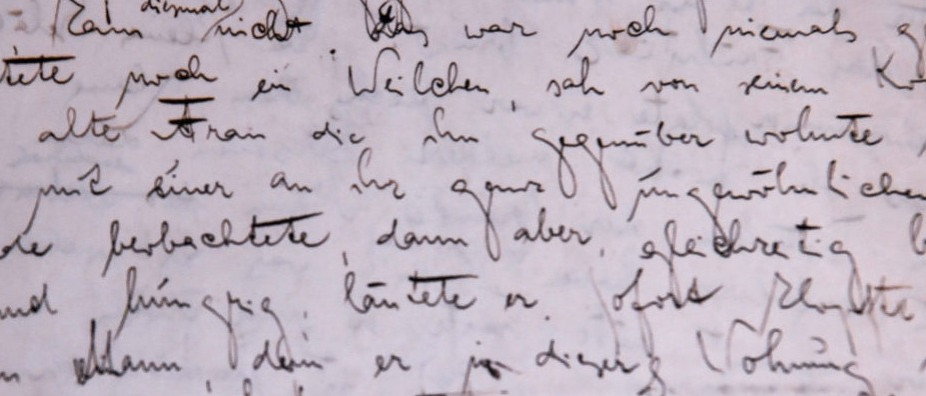 diesmal
kam nicht. Das war noch niemals g
tete noch ein Weilchen, sah von seinem Ko
alte Frau die ihm gegenüber wohnte
mit einer an ihr ganz ungewöhnlichen
de beobachtete, dann aber, gleichzeitig b
und hungrig, läutete er. Sofort klopfte
n Mann, den er in dieser Wohnung